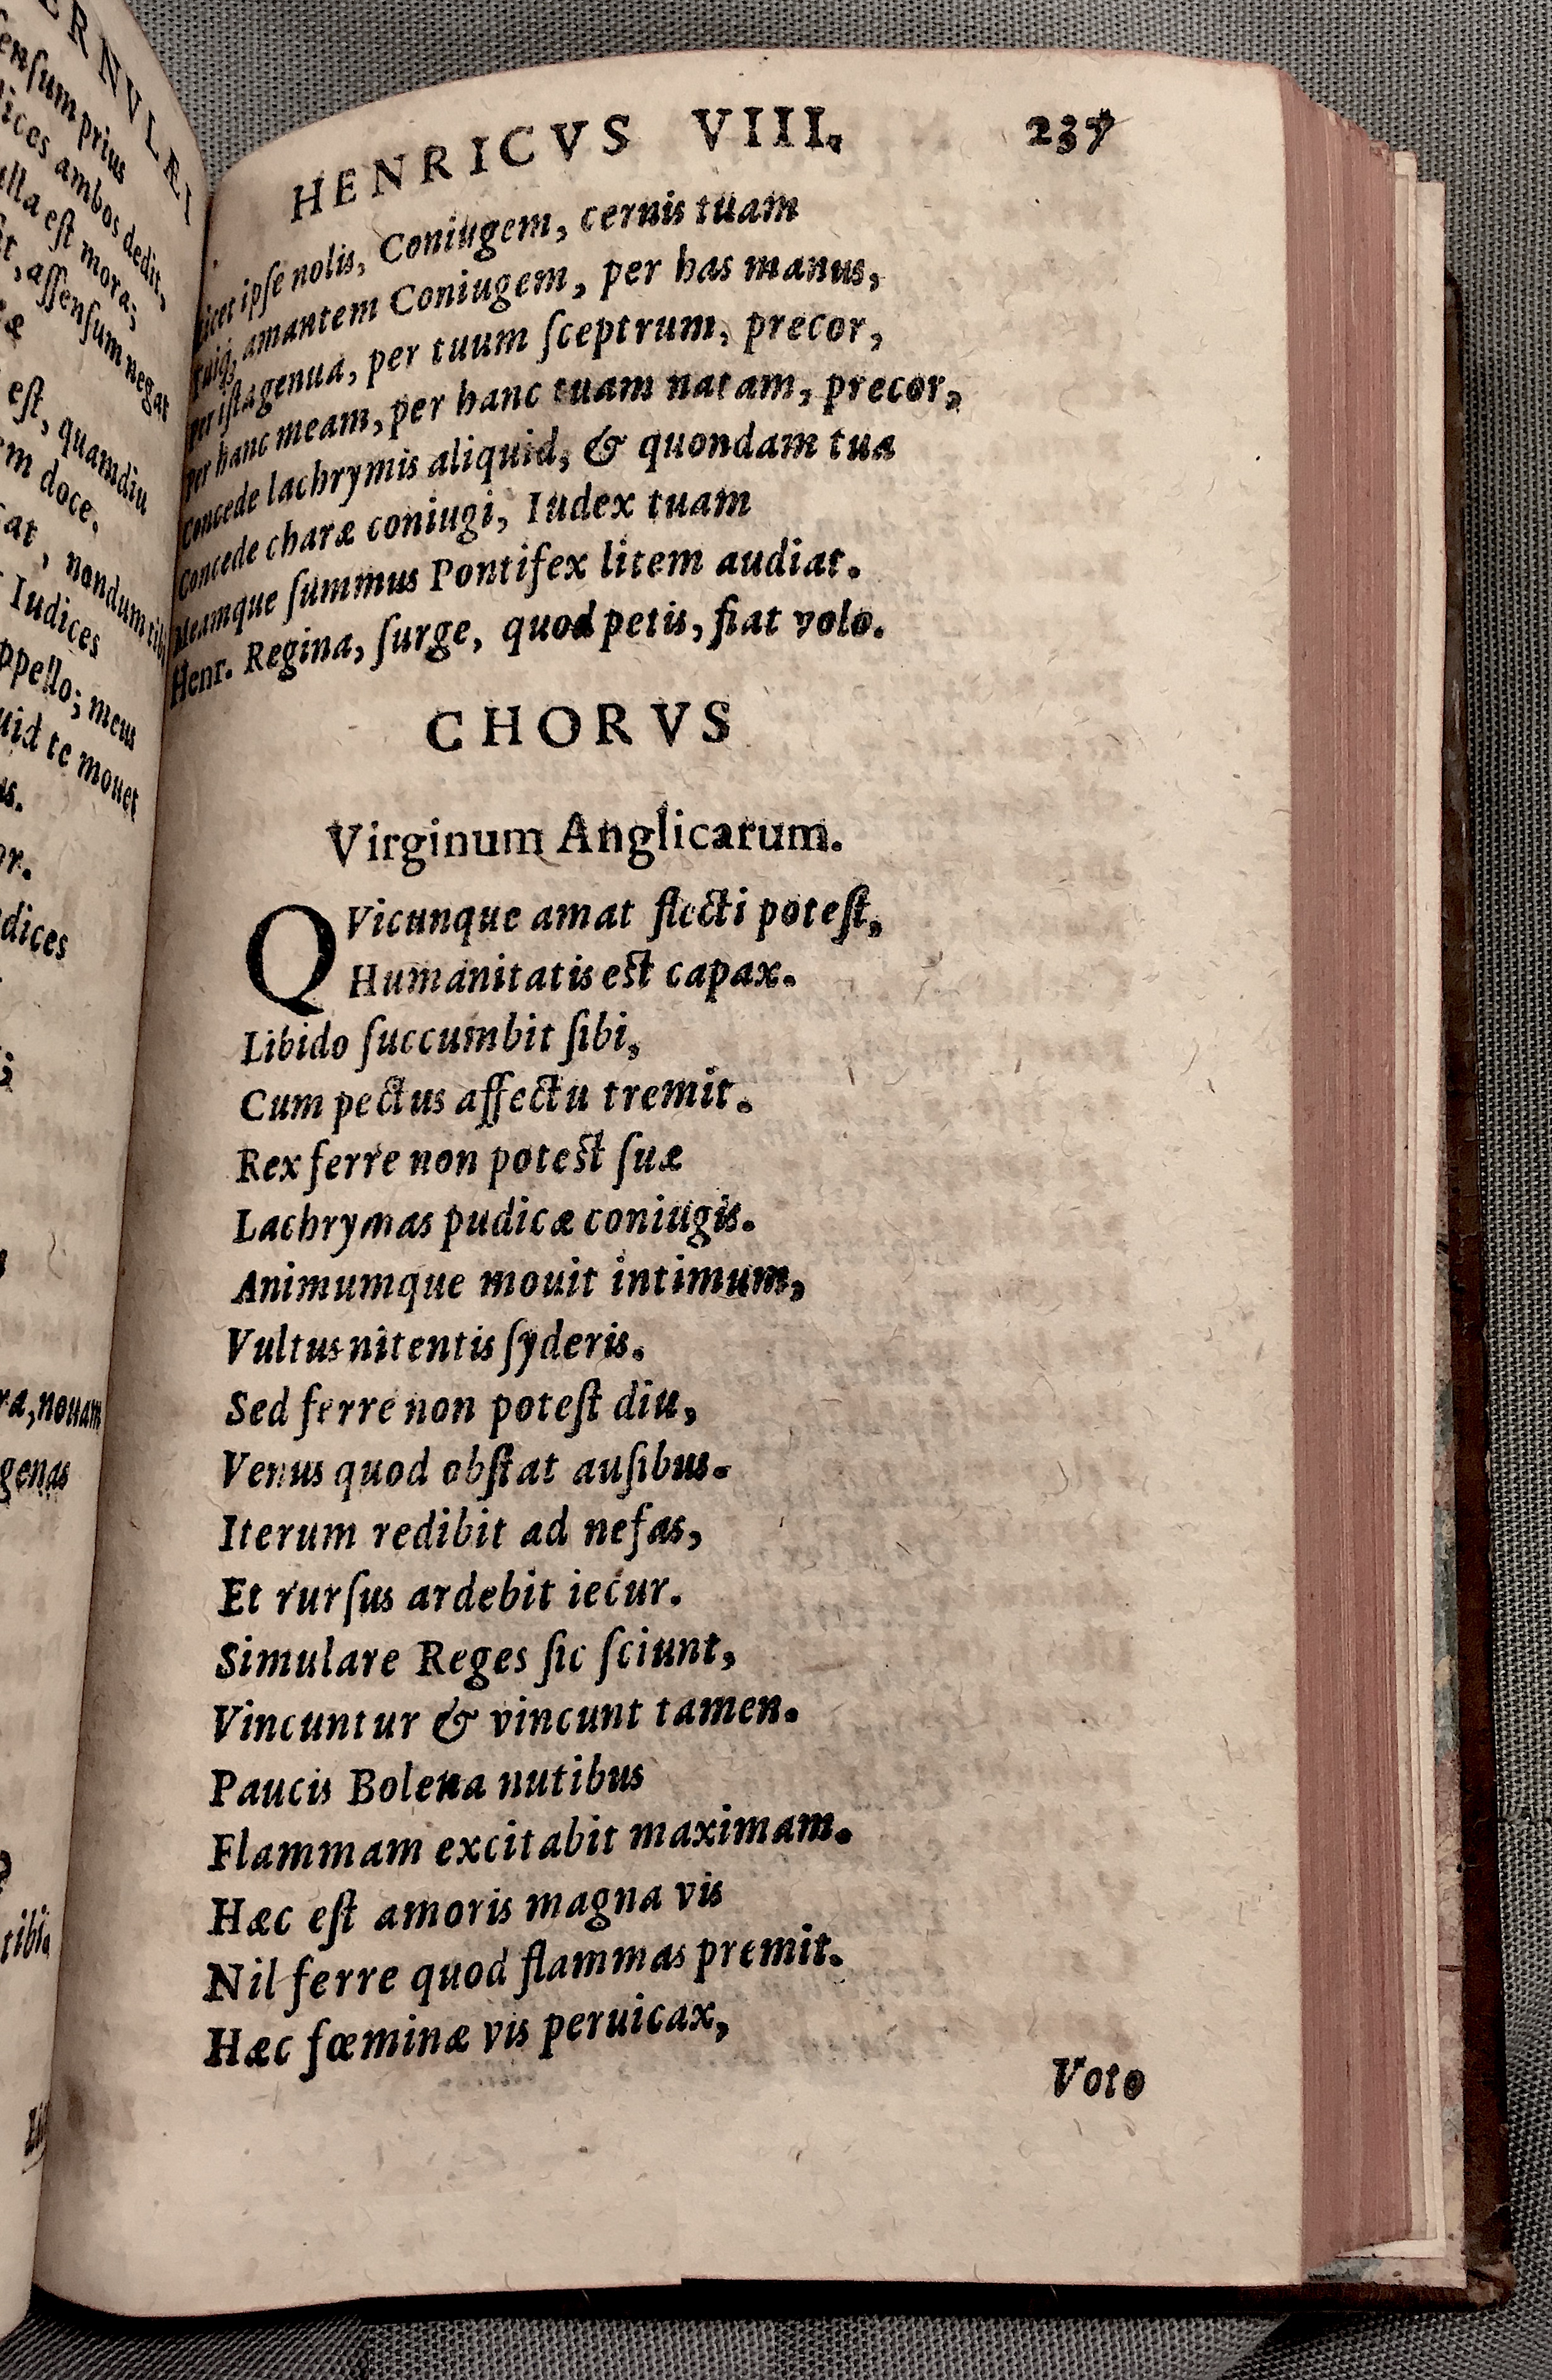 ERNVLÆI
enſum prius
ices ambos dedit,
lla eſt mora;
t, aſſenſum negat
eſt, quamdiu
m doce.
at, nondum tibi
Iudices
ppello; meus
uid te mouet
us.
or.
dices
ra, nouam
genas
tibi,
HENRICVS VIII. 237
Licet ipſe nolis, Coniugem, cernis tuam
Tuiq; amantem Coniugem, per has manus,
Per iſta genua, per tuum ſceptrum, precor,
Per hanc meam, per hanc tuam natam, precor,
Concede lachrymis aliquid, & quondam tua
Concede charæ coniugi, Iudex tuam
Meamque ſummus Pontifex litem audiat.
Henr. Regina, ſurge, quod petis, fiat volo.
CHORVS
Virginum Anglicarum.
QVicunque amat flecti poteſt,
Humanitatis eſt capax.
Libido ſuccumbit ſibi,
Cum pectus affectu tremit.
Rex ferre non poteſt ſuæ
Lachrymas pudicæ coniugis.
Animumque mouit intimum,
Vultus nitentis ſyderis.
Sed ferre non poteſt diu,
Venus quod obſtat auſibus.
Iterum redibit ad nefas,
Et rurſus ardebit iecur.
Simulare Reges ſic ſciunt,
Vincuntur & vincunt tamen.
Paucis Bolena nutibus
Flammam excitabit maximam.
Hæc eſt amoris magna vis
Nil ferre quod flammas premit.
Hæc fœminæ vis peruicax,
Voto